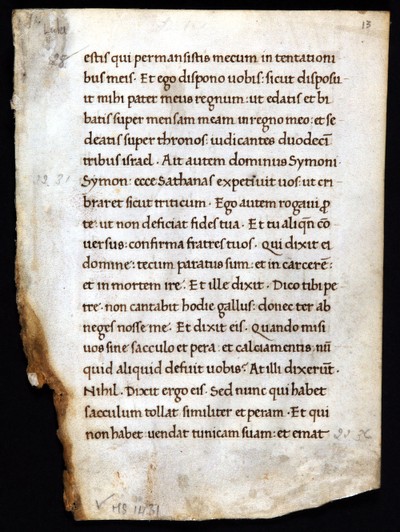 Luke
13
28
estis qui permansistis mecum in tentationi
bus meis. Et ego dispono uobis: sicut disposu
it mihi pater meus regnum: ut edatis et bi
batis super mensam meam in regno meo: et se
deatis super thronos: iudicantes duodecī
tribus israel. Ait autem dominus Symoni.
Symon: ecce Sathanas expetiuit uos: ut cri
braret sicut triticum. Ego autem rogaui ꝓ
te: ut non deficiat fides tua. Et tu aliqn̄ cō
uersus: confirma fratres tuos. Qui dixit ei
domine: tecum paratus sum: et in carcerē:
et in mortem ire. Et ille dixit. Dico tibi pe
tre. non cantabit hodie gallus: donec ter ab
neges nosse me. Et dixit eis. Quando misi
uos sine sacculo et pera: et calciamentis: nū
quid aliquid defuit uobis? At illi dixerūt.
Nihil. Dixit ergo eis. Sed nunc qui habet
sacculum tollat similiter et peram. Et qui
non habet uendat tunicam suam: et emat
MS 14/31